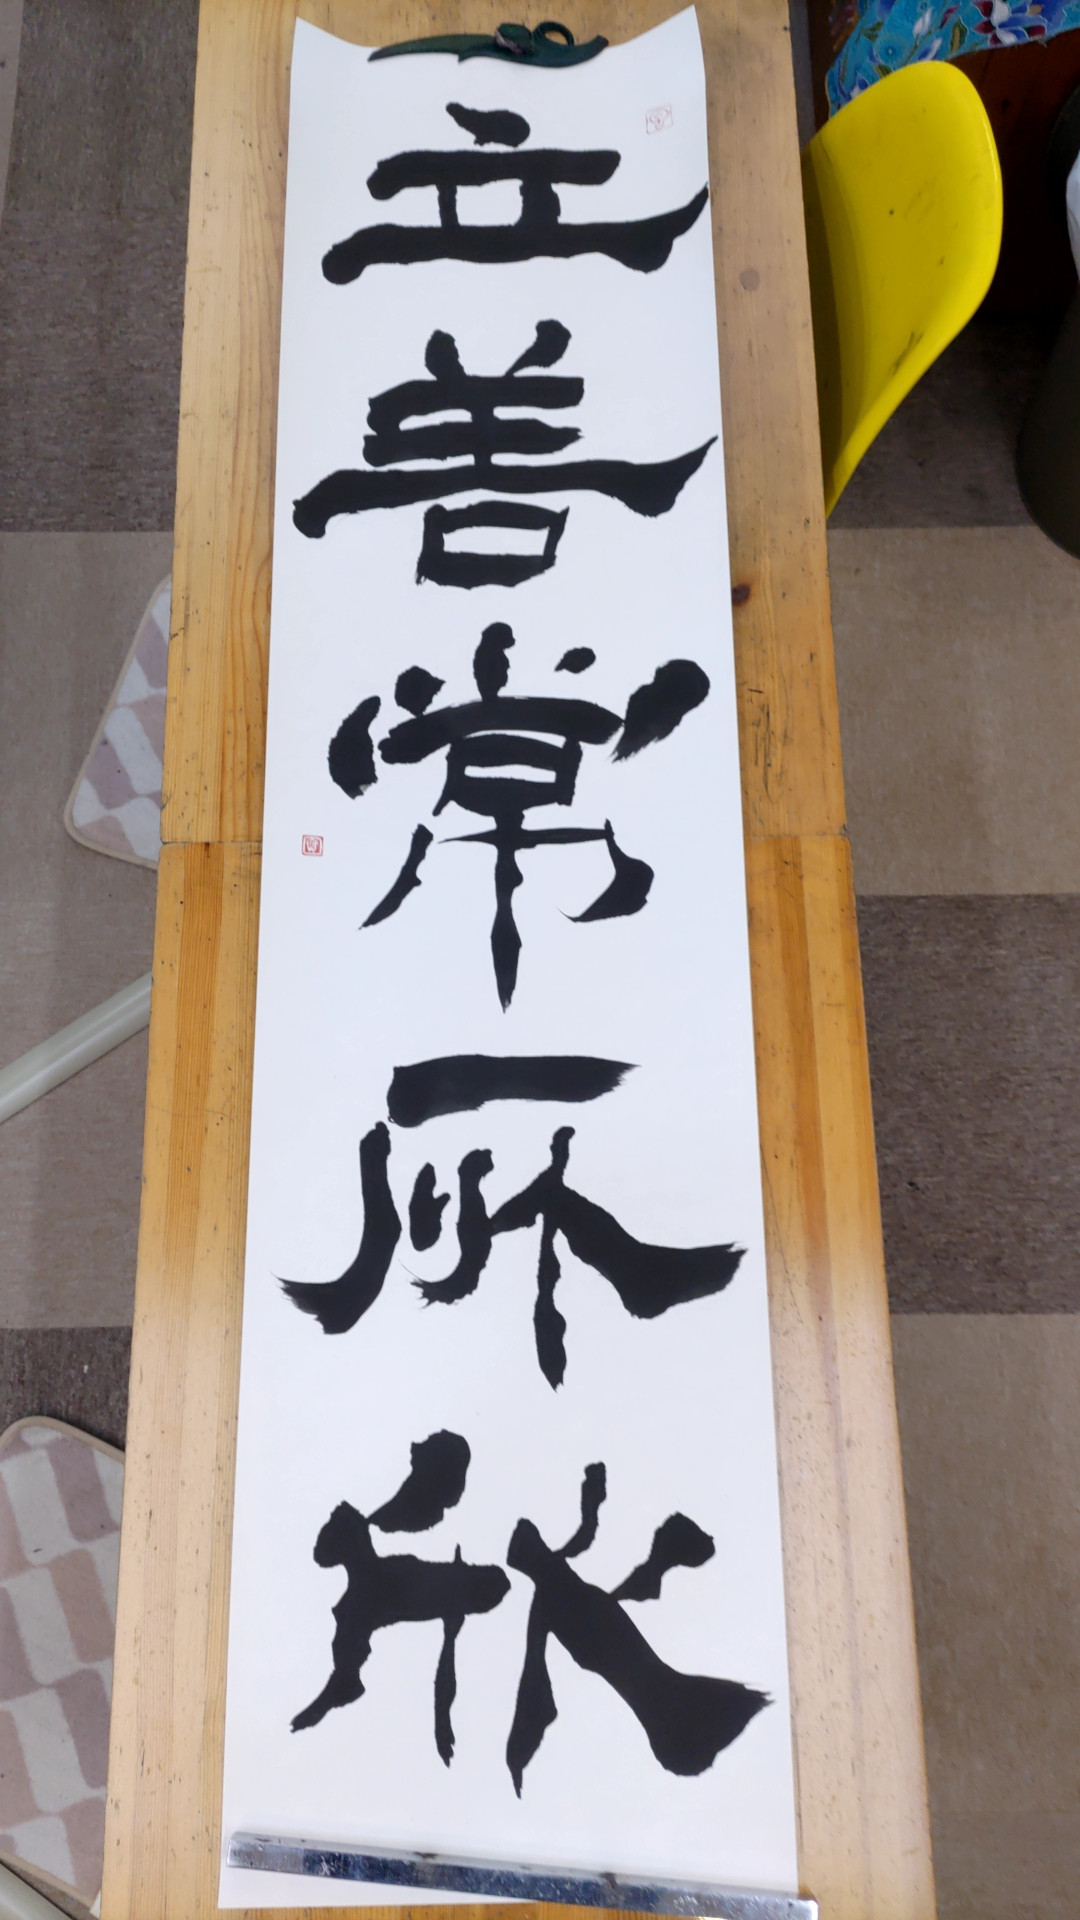 立善常所欣